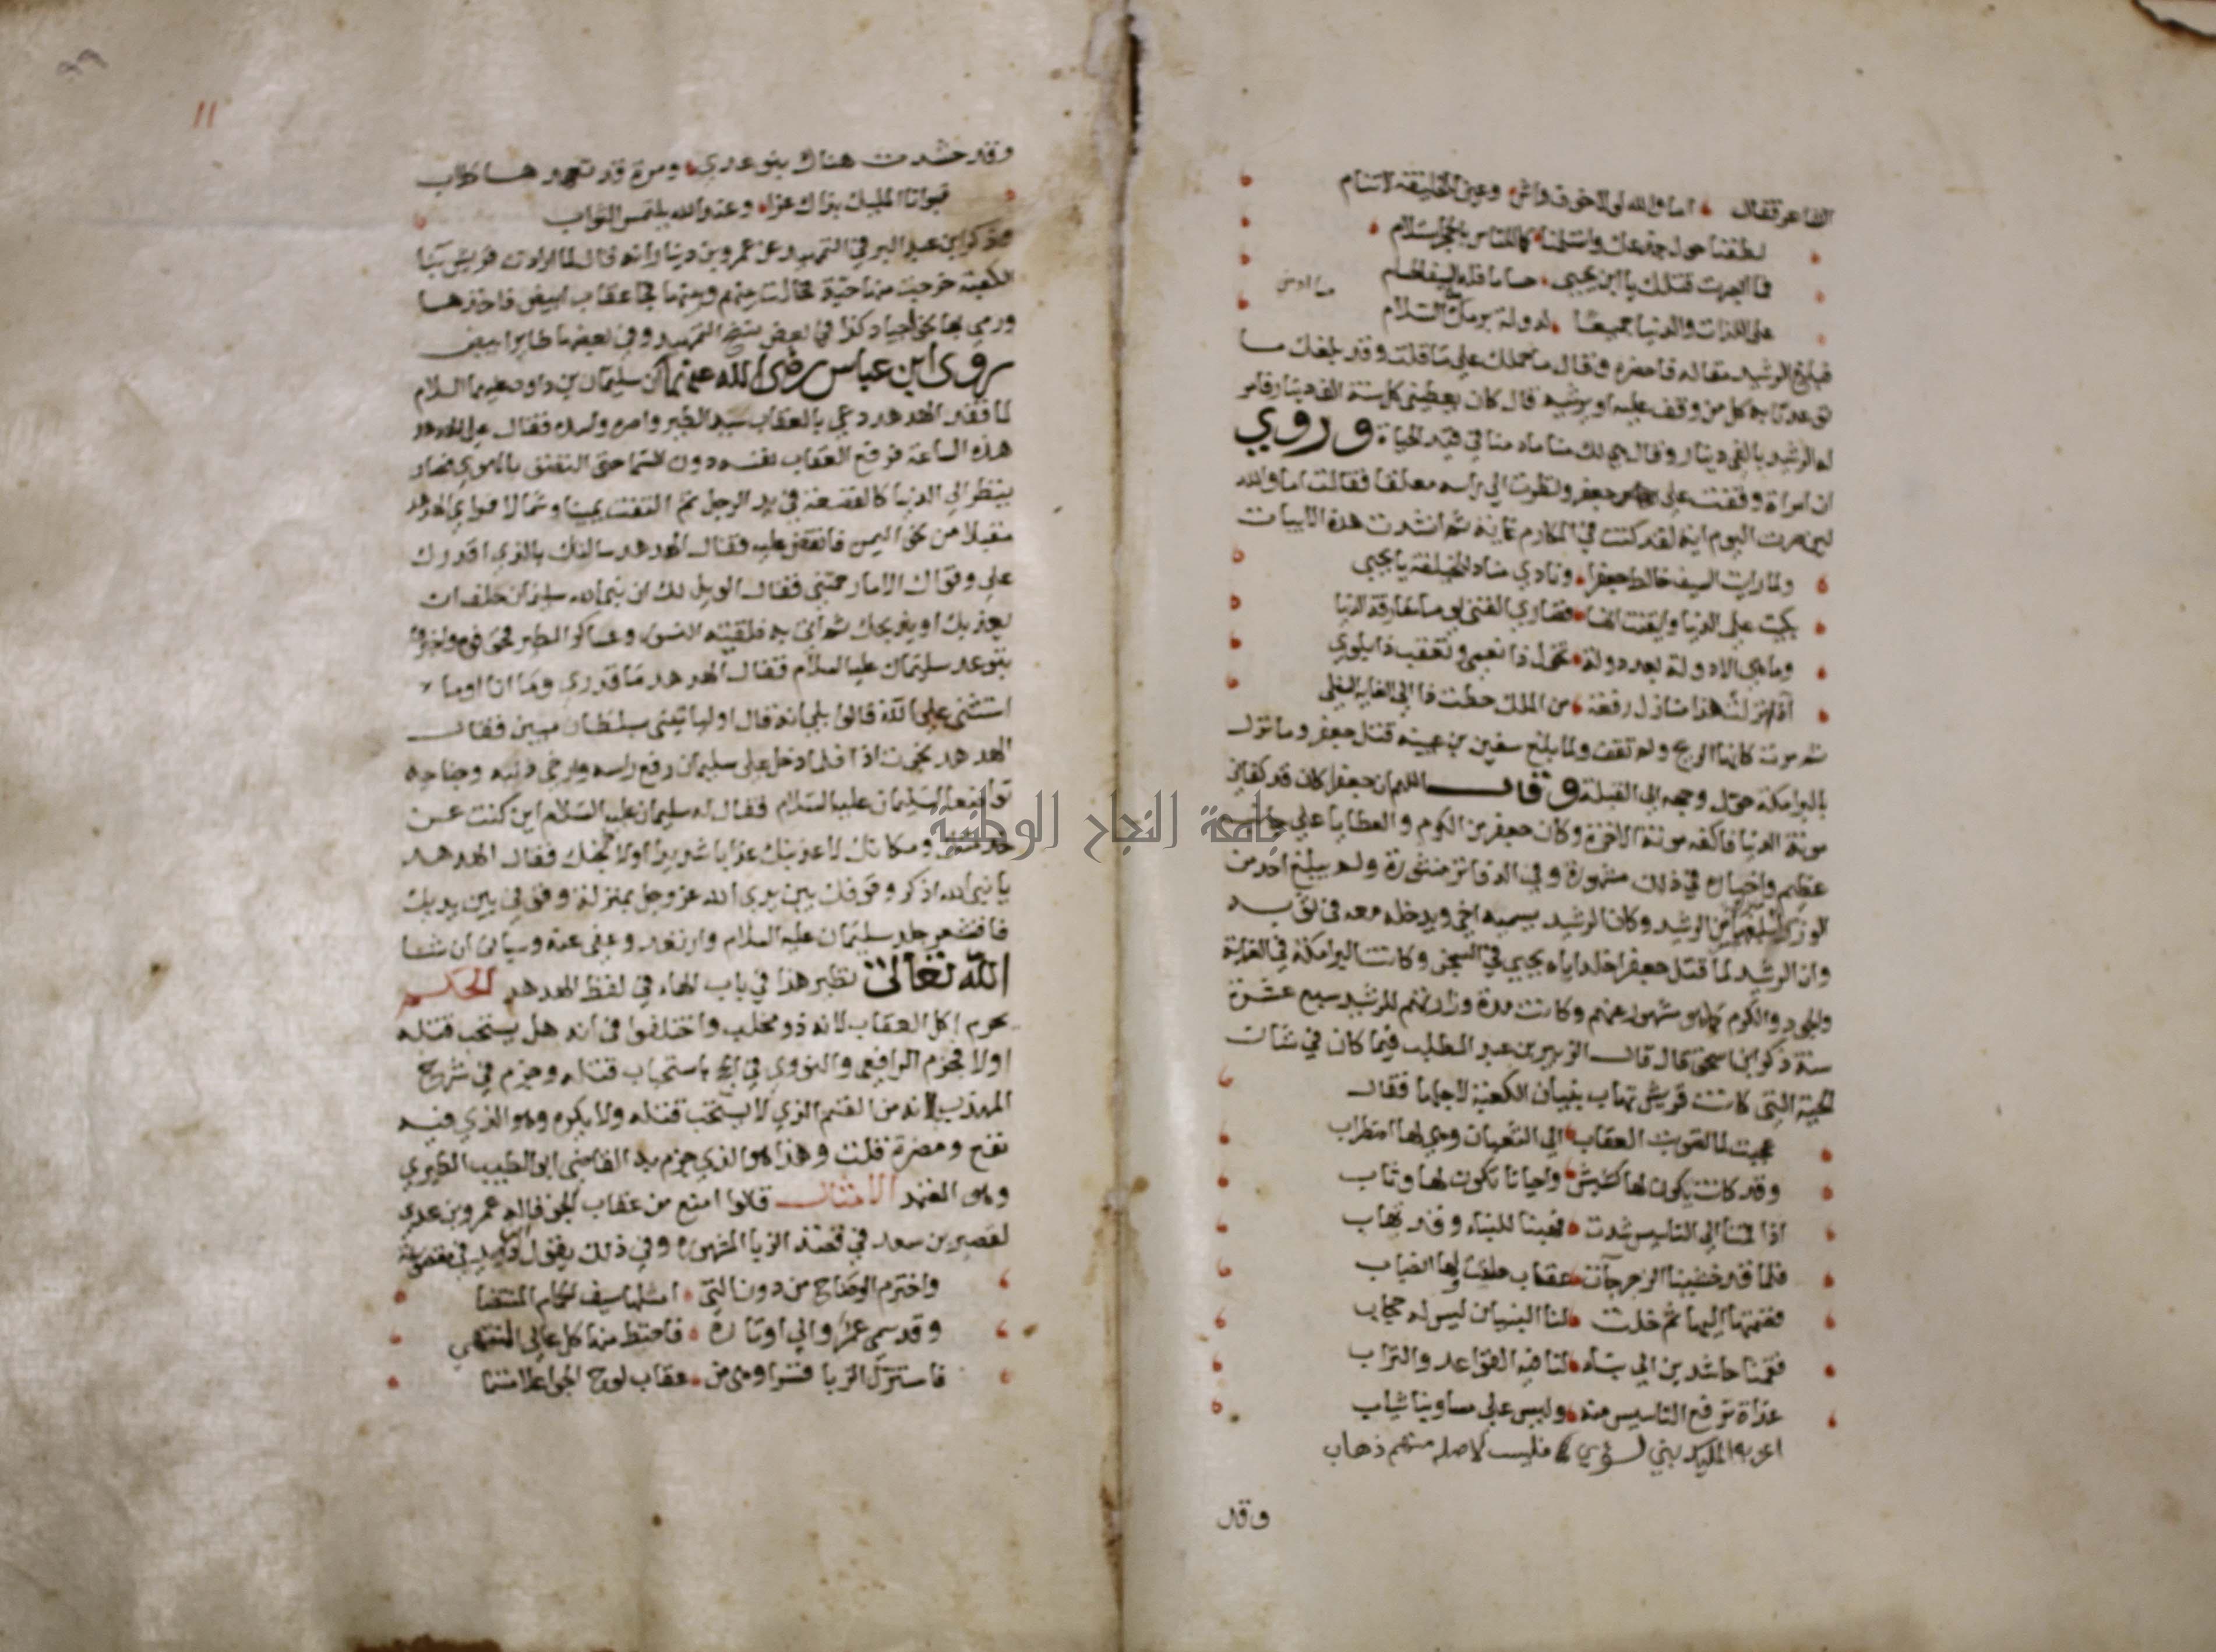 الشاعر فقال اما والله لولا خوف واش وعين الخليفة لا تنام
لطفنا حول جذعك واستلمنا كما للناس بالحجر استلام
فما ابصرت قبلك يا ابن يحيى حساما فله السيف الحسام
على اللذات والدنيا جميعا لدولة برمك السلام
فبلغ الرشيد مقاله فاحضره وقال ما حملك على ما قلت وقد بلغك ما
توعدنا به كل من وقف عليه او يرثيه قال كان يعطيني كل سنة الف دينار فامر
له الرشيد بالفي دينار وقال هي لك منا ما دمنا في قيد الحياة وروي
ان امراة وقفت على جعفر ونظرت الى راسه معلقا فقالت اما والله
لين صرت اليوم اية لقد كنت في المكارم غاية ثم انشدت هذه الابيات
ولما رايت السيف خالط جعفرا ونادى مناد للخليفة يا يحيى
بكيت على الدنيا وايقنت انما قصارى الفتى يوما مفارقة الدنيا
وما هي الا دولة بعد دولة تخول ذا نعمى وتعقب ذا بلوى
اذا انزلت هذا منازل رفعة من الملك حطت ذا الى الغاية السفلى
ثم مرت كانها الريح ولم تقف ولما بلغ سفين بن عيينة قتل جعفر وما نزل
بالبرامكة حول وجهه الى القبلة وقال اللهم ان جعفرا كان قد كفاني
مونة الدنيا فاكفه مونة الاخرة وكان جعفر من الكرم والعطايا على جانب
عظيم واخباره في ذلك مشهورة وفي الدفاتر منشورة ولم يبلغ احد من
الوزراء من الرشيد وكان الرشيد يسميه اخي ويدخله معه في ثوبه
وان الرشيد لما قتل جعفرا خلد اباه يحيى في السجن وكانت البرامكة في الغاية
والجود والكرم كما هو مشهور عنهم وكانت مدة وزارتهم للرشيد سبع عشرة
سنة ذكر ابن اسحق قال قال الزبير بن عبد المطلب فيما كان في شان
الحية التي كانت قريش تهاب بنيان الكعبة لاجلها فقال
عجبت لما تصوبت العقاب الى الثعبان وهي لها اضطراب
وقد كانت يكون لها كشيش واحيانا تكون لها وثاب
اذا قمنا الى التاسيس شدت تهيبنا للبناء وقد تهاب
فلما قد خشينا الزجر جآت عقاب لها انصباب
فضمتها اليها ثم خلت لنا البنيان ليس له حجاب
فقمنا حاشدين الى بناء لنا منه القواعد والتراب
غداة نرفع التاسيس منه وليس على مساوينا ثياب
اعز به المليك بني لؤي فليس لاصله منهم ذهاب
وقد
11
وقد حشدت هناك بنو عدي ومرة قد تعمدها كلاب
فبوانا المليك بذاك عزا وعند الله يلتمس الثواب
وذكر ابن عبد البر في التمهيد عن عمرو بن دينار انه قال لما ارادت قريش بنا
الكعبة خرجت منها حية فحالت بينهم وبينها فجا عقاب ابيض فاخذها
ورمى بها نحو اجياد كذا في بعض نسخ التمهيد وفي بعضها طاير ابيض
روى ابن عباس رضي الله عنهما ان سليمان بن داود عليهما السلام
لما فقد الهدهد دعى بالعقاب سيد الطير فقال علي بالهدهد
هذه الساعة فرفع العقاب نفسه دون السما حتى التصق بالهوي فصار
ينظر الى الدنيا كالقصعة في يد الرجل ثم التفت يمينا وشمالا فراى الهدهد
مقبلا من نحو اليمن فانقض عليه فقال الهدهد سالتك بالذي اقدرك
علي وقواك الا ما رحمتني فقال الويل لك ان نبي الله سليمان حلف ان
يعذبك او يذبحك ثم اتى به فلقيته النسور وعساكر الطير
بتوعد سليمان عليه السلام فقال الهدهد ما قدري وما انا اوما
استثنى نبي الله قالوا بلى انه قال او لياتيني بسلطان مبين فقال
الهدهد نجوت اذا فلما دخل على سليمان رفع راسه وارخى ذنبه وجناحيه
تواضعا لسليمان عليه السلام فقال له سليمان عليه السلام اين كنت عن
خدمتك ومكانك لاعذبنك عذابا شديدا او لاذبحنك فقال الهدهد
يا نبي الله اذكر وقوفك بين يدي الله عز وجل بمنزلة وقوفي بين يديك
فاقشعر جلد سليمان عليه السلام وارتعد وعفى عنه وسياتي ان شا
الله تعالى نظير هذا في باب الهاء في لفظ الهدهد الحكم
يحرم اكل العقاب لانه ذو مخلب واختلفوا في انه هل يستحب قتله
اولا فجزم الرافعي والنووي في الحج باستحباب قتله وجزم في شرح
المهذب لانه من القسم الذي لا يستحب قتله ولا يكره وهو الذي فيه
نفع ومضرة قلت وهذا هو الذي جزم به القاضي ابو الطيب الطبري
وهو المعتمد الامثال قالوا امنع من عقاب الجو قاله عمرو بن عدي
لقصير بن سعد في قصة الزبا المشهورة وفي ذلك يقول ابن دريد في مقصورته
واخترم الوضاح من دون التي املها سيف الحمام المنتضا
وقد سمى عمرو الى اوتاره فاحتط منها كل عالي المنتهى
فاستنزل الزبا قسرا وهي من عقاب لوح الجو اعلا منتما